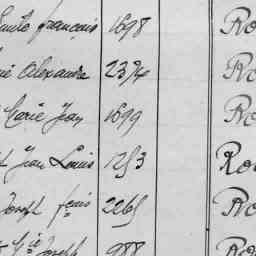 Emile François 1698 Ro
Alexandre 2374 Ro
Marie Jean 1699 Ro
Jean Louis 1253 Ro
Joseph fçois 2265 Ro
Joseph 988 Ro